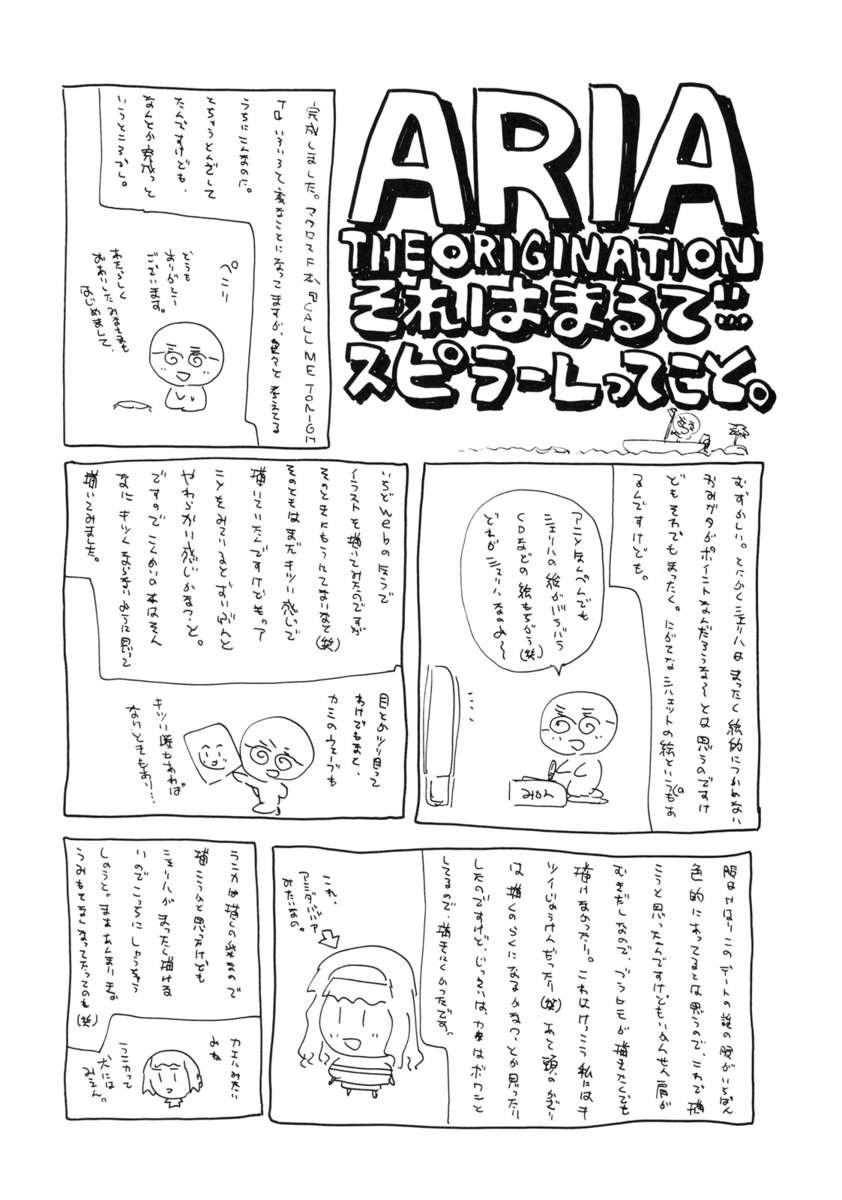 ARIA
THE ORIGINATION
それはまるで…
スピラーLってこと。
完成しました。マクロスF本、『CALL ME TONIGH
T』いろいろで変なことになってますが、色々と考えてる
うちにこんなのに。
とちゅうとんざして
たんですけども、
なんとか完成っと
いうところデシ。
ぺこり
どうも
ありがとう
ございます。
あたらしく
おあいしたみなさまも
はじめまして。
むずかしい。とにかくシェリルはまったく絵的につかめない
おみグタがポイントなんだろうな〜とは思うのですけ
どもそれでもまったく。にがてなシルエットの絵というもの
るんですけども。
アニメほんぺんでも
シェリルの絵がバラバラ
CDなどの絵もちがう(笑)
どれがシェリルなのよ〜
…
みかん
いちどwebの方で
イラストを描いてみたのですが
そのときにもうにてないなと(笑)
そのときはまだキツい感じで
描いていたんですけどもア
ことをみているとずいぶんと
やわらかい感じかなっ、と。
ですのでこんかいの本はそん
なにキツくならないように思って
描いてみました。
目とかツリ目って
わけでもなく、
カミのウェーブも
キツい時もあれば
ないときもあり…
服はやはりこのデートの話の服がいちばん
色的にあってるとは思うので、これで描
こうと思ったんですけどもいかんせん肩が
むきだしなので、ブラヒモが描きたくても
描けなかったり。これはけっこう私にはキ
ツイじょうけんだったり(笑)あと頭のかざり
は描くのらくになるかなっ、とか思ったり
したのですけど、じっさいは、カミはボワンと
してるので、描きにくかったです。
これ、
アミダババア
みたいなの。
ランカは描くの楽なので
描こうかと思ったけども
シェリルがまったく描ける
いのでこっちにしちゃおう
しようと。まぁあんまりキ。
うみもてなくなってたってのも(笑)
カエルみたい
よね
ランカって
犬には
みえん。